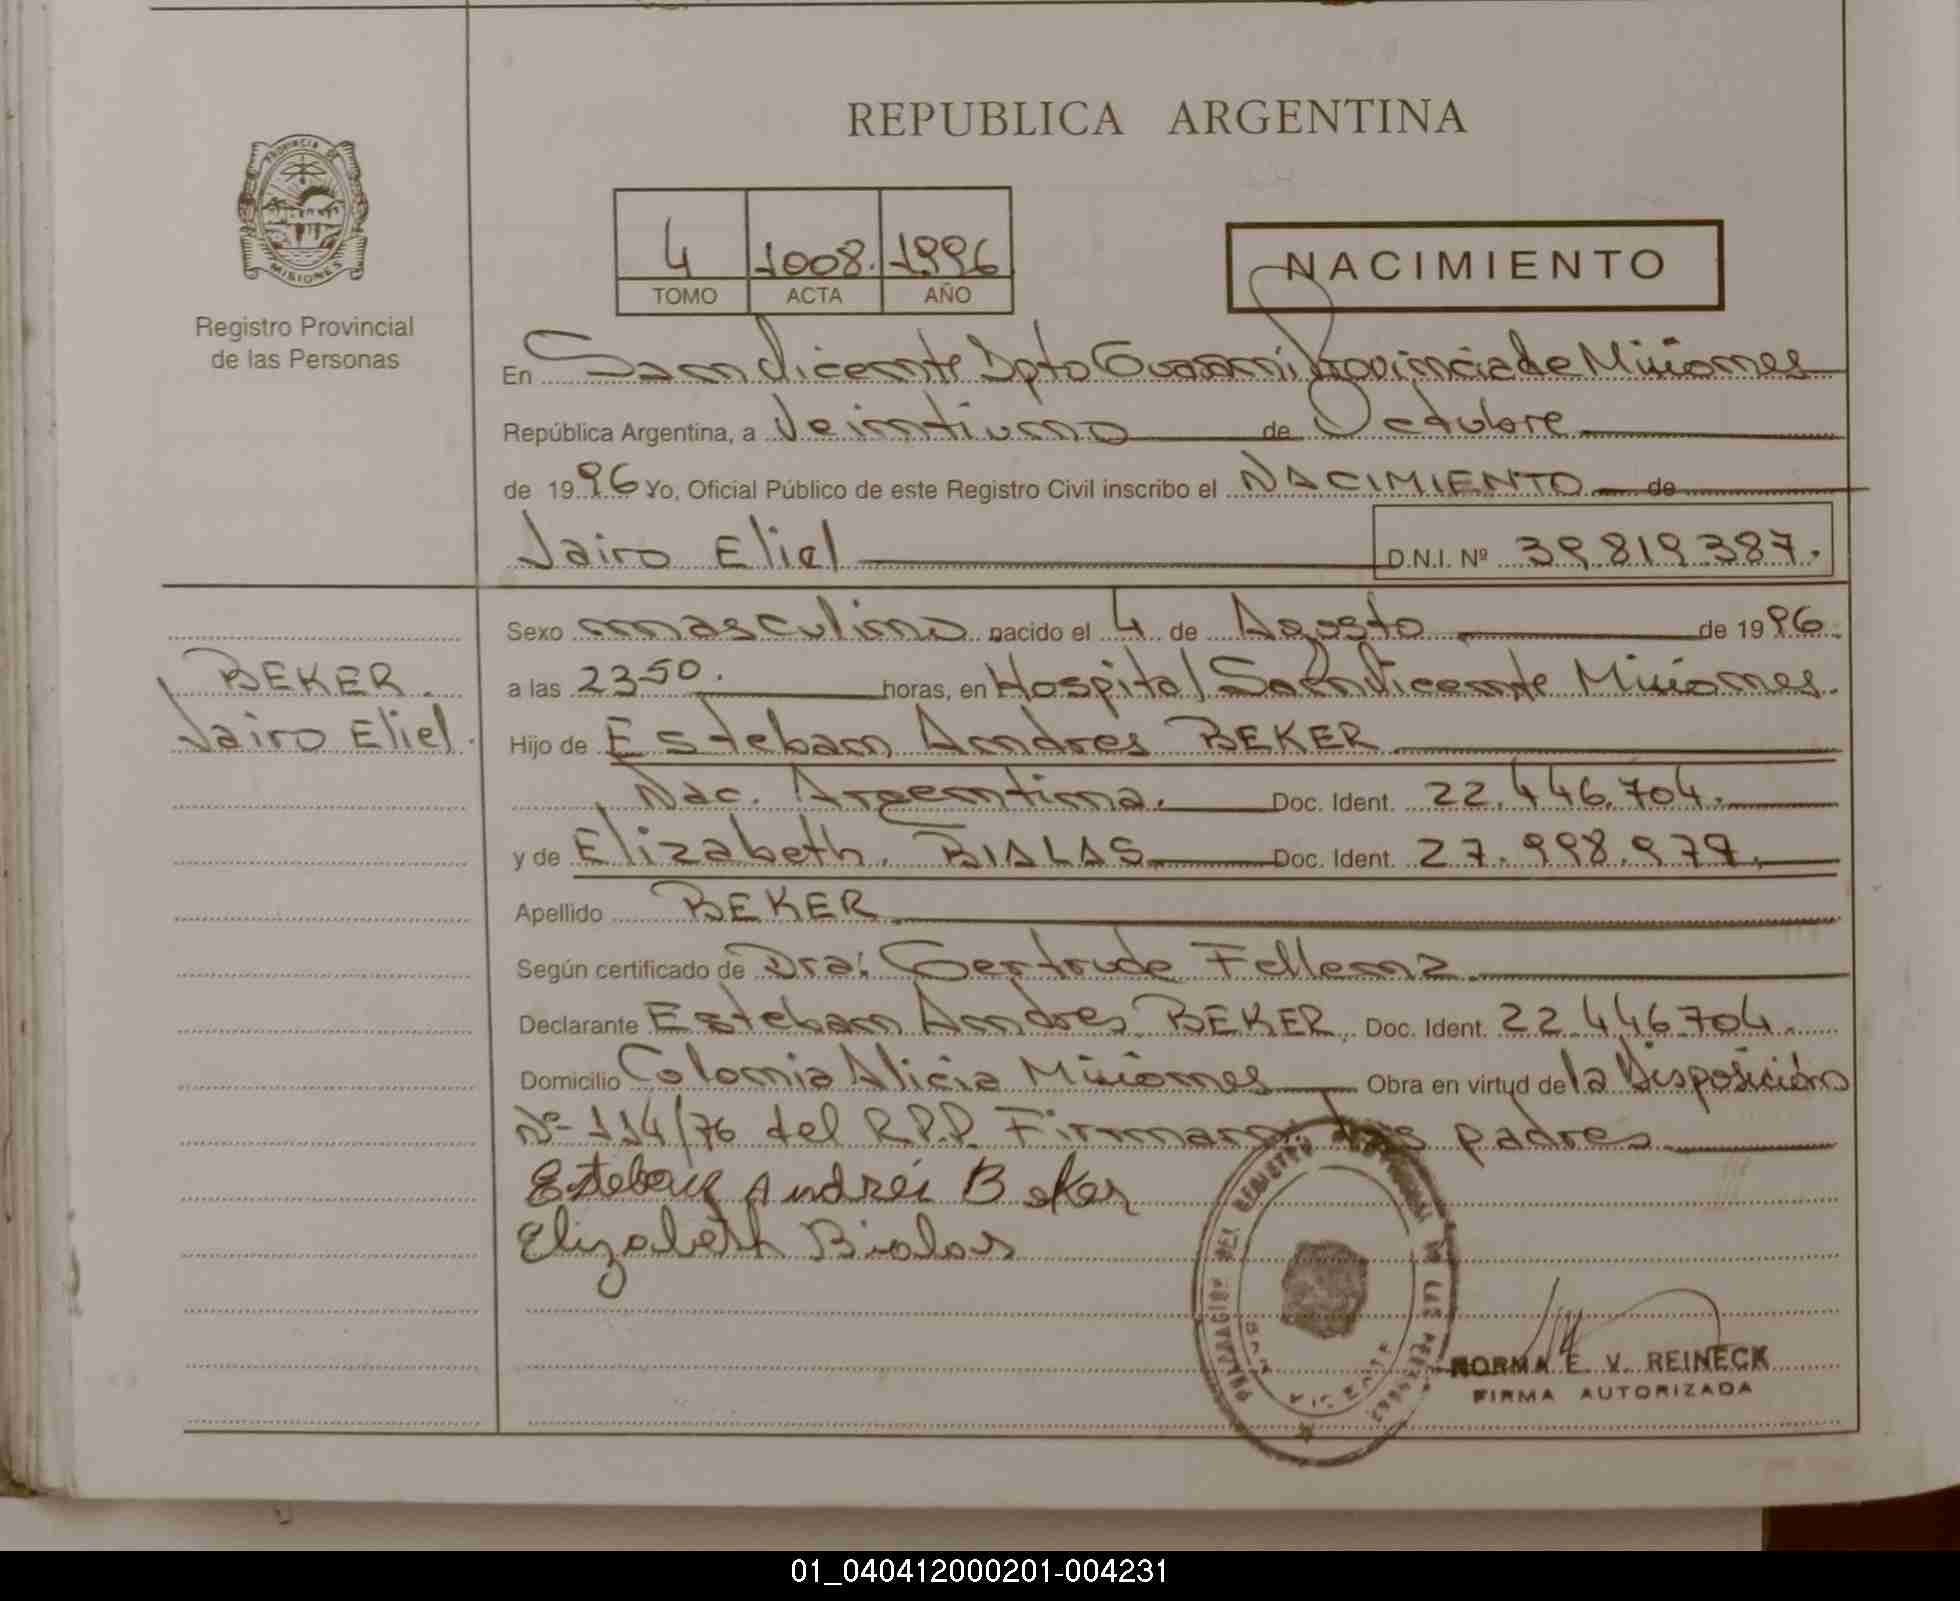 REPUBLICA ARGENTINA
PROVINCIA DE
MISIONES
Registro Provincial
de las Personas
4 1008. 1996
TOMO ACTA AÑO
NACIMIENTO
En San Vicente Dpto Guarani Provincia de Misiones
República Argentina, a Veintiuno de Octubre
de 1996 Yo, Oficial Público de este Registro Civil inscribo el NACIMIENTO de
Jairo Eliel D.N.I. Nº 39.819.387.
BEKER.
Jairo Eliel.
Sexo masculino nacido el 4 de Agosto de 1996.
a las 23-50. horas, en Hospital San Vicente Misiones.
Hijo de Esteban Andres BEKER
Nac. Argentina. Doc. Ident. 22.446.704.
y de Elizabeth. BIALAS Doc. Ident. 27.998.979.
Apellido BEKER
Según certificado de Dra: Gertrude Fellenz
Declarante Esteban Andres BEKER, Doc. Ident. 22.446.704.
Domicilio Colonia Alicia Misiones Obra en virtud de la Disposición
Nº 114/76 del R.P.P. Firman los padres
Esteban Andrés Beker
Elizabeth Bialas
DEL REGISTRO PROVINCIAL DE LAS PERSONAS
SAN VICENTE
NORMA E. V. REINECK
FIRMA AUTORIZADA
01_040412000201-004231